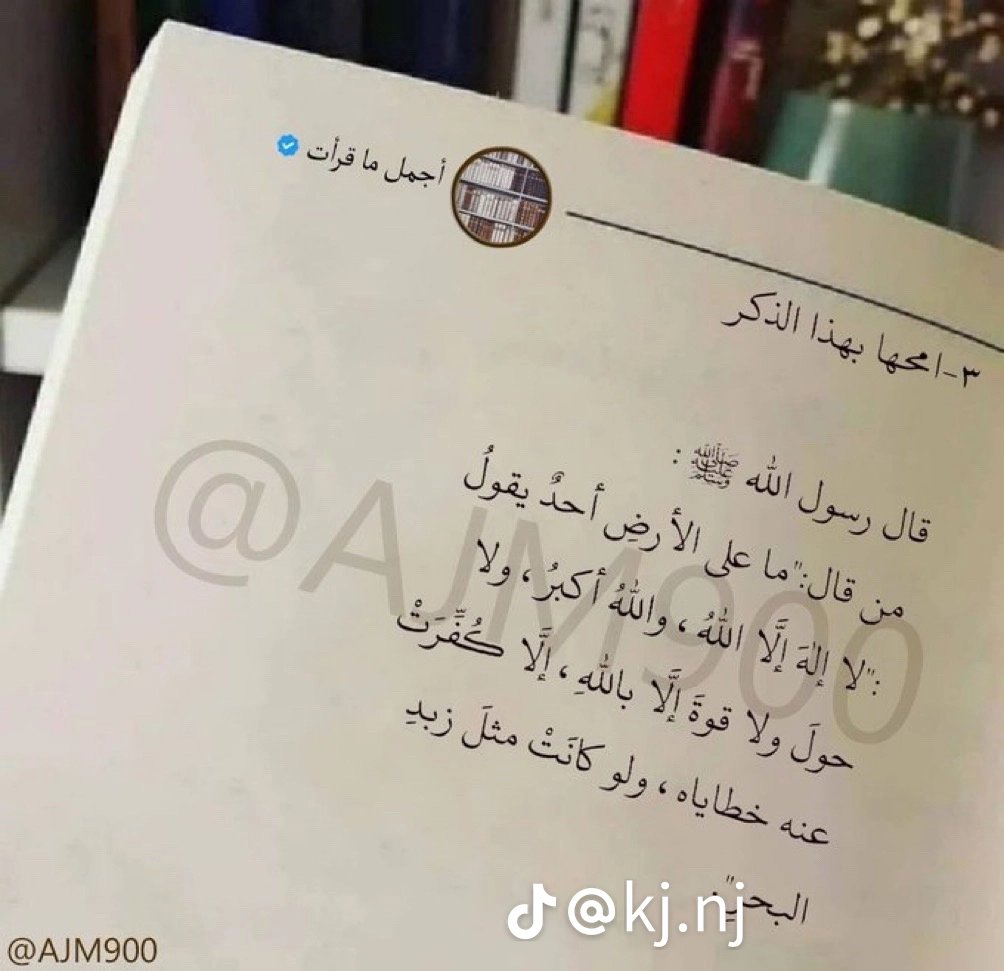 أجمل ما قرأت
٣-امحها بهذا الذكر
قال رسول الله ﷺ :
من قال:"ما على الأرضِ أحدٌ يقولُ
:"لا إلهَ إلَّا اللهُ ، واللهُ أكبرُ ، ولا
حولَ ولا قوةَ إلَّا باللهِ ، إلَّا كُفِّرَتْ
عنه خطاياه ، ولو كانَتْ مثلَ زبدِ
البحرِ".
@AJM900
@kj.nj
@AJM900